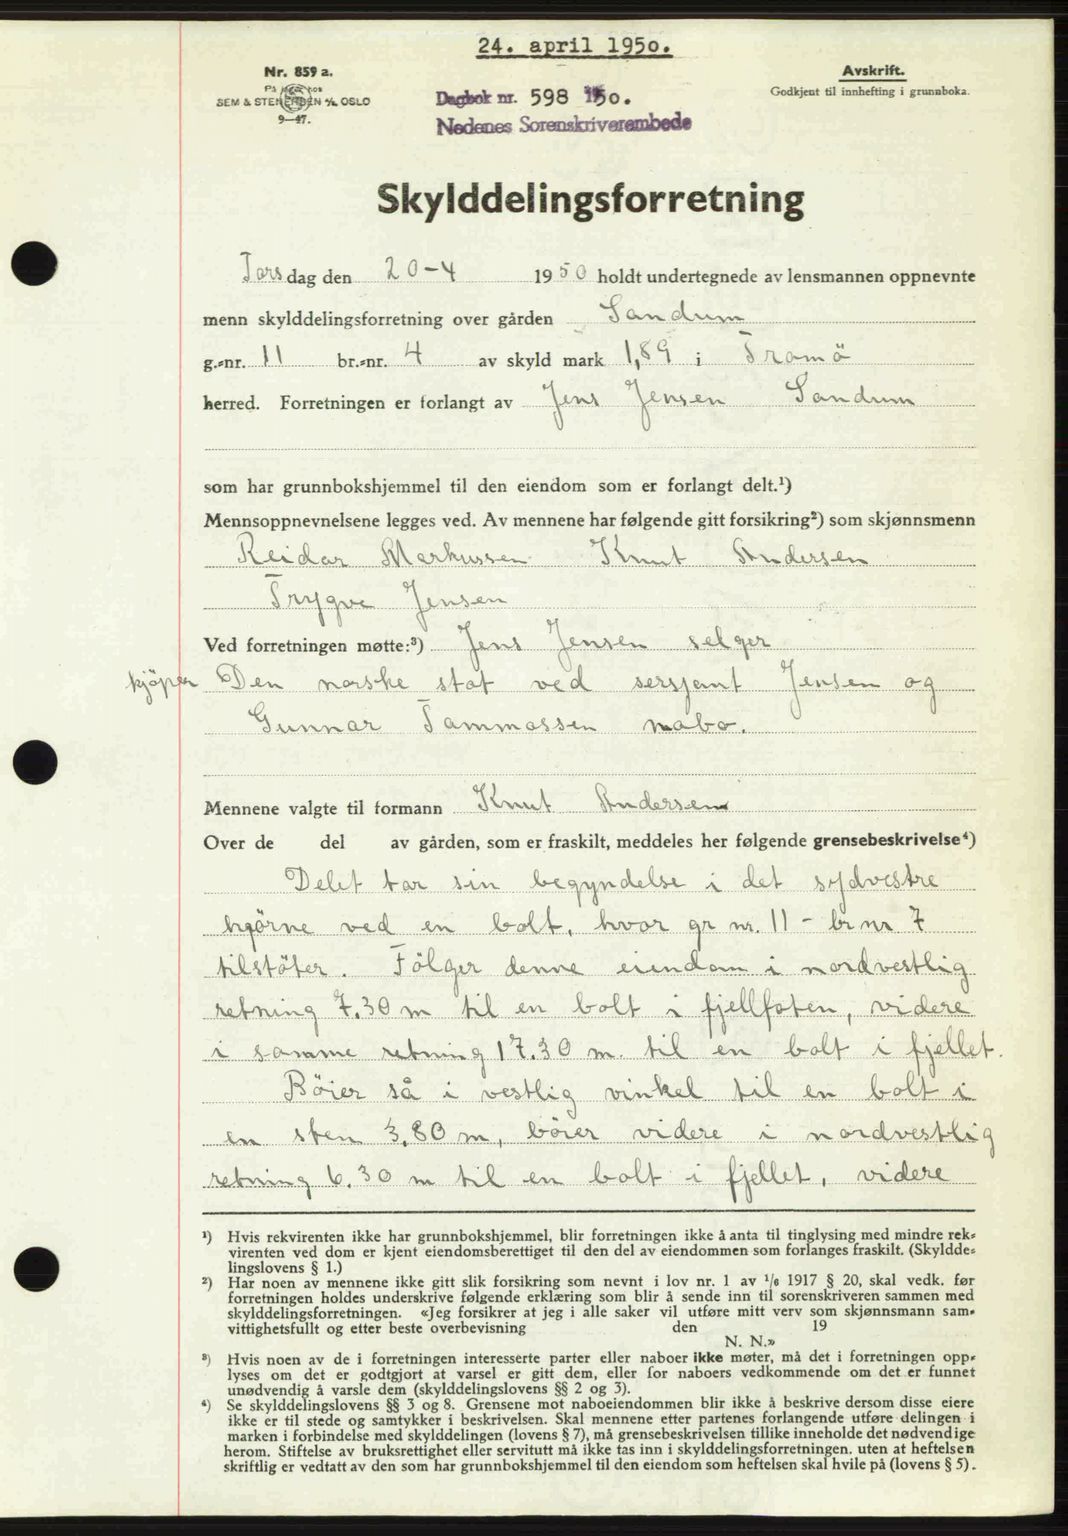 24. april 1950.
Nr. 859 a.
På lager hos
SEM & STENERSEN A/S OSLO
9—47.
Dagbok nr. 598 1950.
Nedenes Sorenskriverembede
Avskrift.
Godkjent til innhefting i grunnboka.
Skylddelingsforretning
Torsdag den 20-4 1950 holdt undertegnede av lensmannen oppnevnte
menn skylddelingsforretning over gården Sandum
g.-nr. 11 br.-nr. 4 av skyld mark 1,89 i Tromö
herred. Forretningen er forlangt av Jens Jensen Sandum
som har grunnbokshjemmel til den eiendom som er forlangt delt.¹)
Mennsoppnevnelsene legges ved. Av mennene har følgende gitt forsikring²) som skjønnsmenn
Reidar Markussen Knut Andersen
Trygve Jensen
Ved forretningen møtte:³) Jens Jensen selger
kjöper Den norske stat ved sersjant Jensen og
Gunnar Tommassen nabo.
Mennene valgte til formann Knut Andersen
Over de del av gården, som er fraskilt, meddeles her følgende grensebeskrivelse⁴)
Delet tar sin begyndelse i det sydvestre
hjörne ved en bolt, hvor gr nr. 11 - br nr 7
tilstöter. Fölger denne eiendom i nordvestlig
retning 7.30 m til en bolt i fjellfoten, videre
i samme retning 17.30 m. til en bolt i fjellet.
Böier så i vestlig vinkel til en bolt i
en sten 3,80 m, böier videre i nordvestlig
retning 6.30 m til en bolt i fjellet, videre
¹) Hvis rekvirenten ikke har grunnbokshjemmel, blir forretningen ikke å anta til tinglysing med mindre rek-
virenten ved dom er kjent eiendomsberettiget til den del av eiendommen som forlanges fraskilt. (Skyldde-
lingslovens § 1.)
²) Har noen av mennene ikke gitt slik forsikring som nevnt i lov nr. 1 av 1/6 1917 § 20, skal vedk. før
forretningen holdes underskrive følgende erklæring som blir å sende inn til sorenskriveren sammen med
skylddelingsforretningen. «Jeg forsikrer at jeg i alle saker vil utføre mitt verv som skjønnsmann sam-
vittighetsfullt og etter beste overbevisning den 19
N. N.»
³) Hvis noen av de i forretningen interesserte parter eller naboer ikke møter, må det i forretningen opp-
lyses om det er godtgjort at varsel er gitt dem, eller for naboers vedkommende om det er funnet
unødvendig å varsle dem (skylddelingslovens §§ 2 og 3).
⁴) Se skylddelingslovens §§ 3 og 8. Grensene mot naboeiendommen blir ikke å beskrive dersom disse eiere
ikke er til stede og samtykker i beskrivelsen. Skal mennene etter partenes forlangende utføre delingen i
marken i forbindelse med skylddelingen (lovens § 7), må grensebeskrivelsen tillike inneholde det nødvendige
herom. Stiftelse av bruksrettighet eller servitutt må ikke tas inn i skylddelingsforretningen, uten at heftelsen
skriftlig er vedtatt av den som har grunnbokshjemmel til den eiendom som heftelsen skal hvile på (lovens § 5).